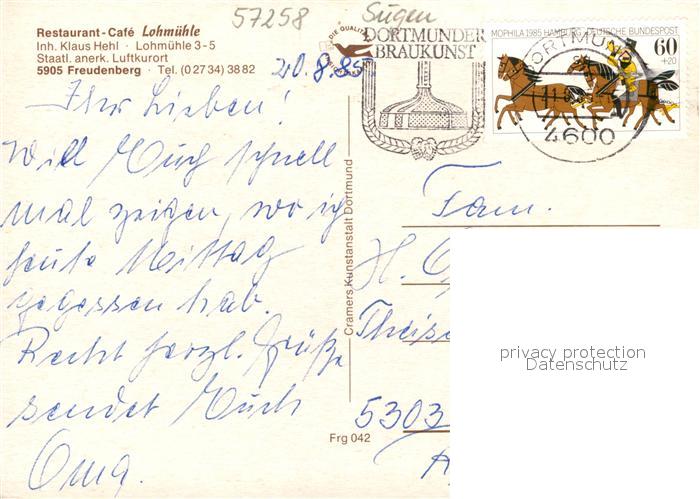 57258
Restaurant-Café Lohmühle
Inh. Klaus Hehl · Lohmühle 3-5
Staatl. anerk. Luftkurort
5905 Freudenberg · Tel. (0 27 34) 38 82
20.8.85
Ihr Lieben!
Will Euch schnell
mal zeigen, wo ich
heute Mittag
gegessen hab.
Recht herzl. Grüße
sendet Euch
Oma.
DIE QUALITÄT
DORTMUNDER
BRAUKUNST
MOPHILA 1985 HAMBURG DEUTSCHE BUNDESPOST
60
+20
DORTMUND
4600
Cramers Kunstanstalt Dortmund
Frg 042
Fam.
H.
5303
privacy protection
Datenschutz